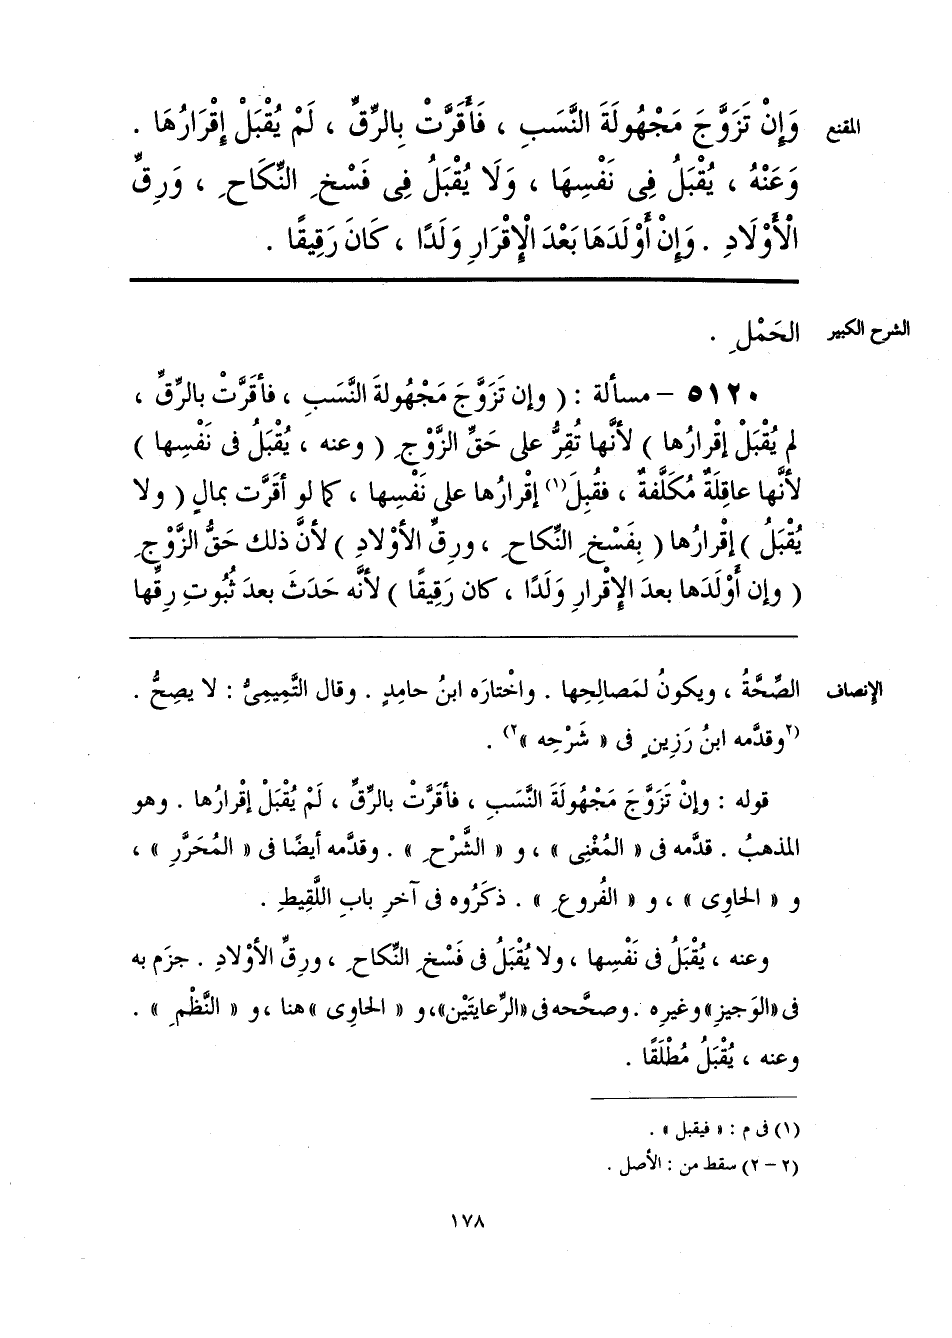 المقنع وَإِنْ تَزَوَّجَ مَجْهُولَةَ النَّسَبِ ، فَأَقَرَّتْ بِالرِّقِّ ، لَمْ يُقْبَلْ إِقْرَارُهَا .
وَعَنْهُ ، يُقْبَلُ فِى نَفْسِهَا ، وَلَا يُقْبَلُ فِى فَسْخِ النِّكَاحِ ، وَرِقِّ
الْأَوْلَادِ . وَإِنْ أَوْلَدَهَا بَعْدَ الْإِقْرَارِ وَلَدًا ، كَانَ رَقِيقًا .
الشرح الكبير الحَمْلِ .
٥١٢٠ – مسألة : ( وإن تَزَوَّجَ مَجْهُولةَ النَّسَبِ ، فأقَرَّتْ بالرِّقِّ ،
لم يُقْبَلْ إقْرارُها ) لأنَّها تُقِرُّ على حَقِّ الزَّوْجِ ( وعنه ، يُقْبَلُ فى نَفْسِها )
لأنَّها عاقِلَةٌ مُكَلَّفةٌ ، فقُبِلَ(١) إقْرارُها على نَفْسِها ، كما لو أقَرَّت بمالٍ ( ولا
يُقْبَلُ ) إقْرارُها ( بفَسْخِ النِّكاحِ ، ورِقِّ الأوْلادِ ) لأنَّ ذلك حَقُّ الزَّوْجِ
( وإن أوْلَدَها بعدَ الإِقْرارِ وَلَدًا ، كان رَقِيقًا ) لأنَّه حَدَثَ بعدَ ثُبُوتِ رِقِّها
الإنصاف الصِّحَّةُ ، ويكونُ لمَصالِحِها . واخْتارَه ابنُ حامِدٍ . وقال التَّمِيمِىُّ : لا يصِحُّ .
(٢وقدَّمه ابنُ رَزِينٍ فى « شَرْحِه »٢) .
قوله : وإنْ تَزَوَّجَ مَجْهُولَةَ النَّسَبِ ، فأقَرَّتْ بالرِّقِّ ، لَمْ يُقْبَلْ إقْرارُها . وهو
المذهبُ . قدَّمه فى « المُغْنِى » ، و « الشَّرْحِ » . وقدَّمه أيضًا فى « المُحَرَّرِ » ،
و « الحاوِى » ، و « الفُروعِ » . ذكَرُوه فى آخرِ بابِ اللَّقِيطِ .
وعنه ، يُقْبَلُ فى نَفْسِها ، ولا يُقْبَلُ فى فَسْخِ النِّكاحِ ، ورِقِّ الأوْلادِ . جزَم به
فى «الوَجيزِ» وغيرِه . وصحَّحه فى «الرِّعايتَيْن» ، و « الحاوِى » هنا ، و « النَّظْمِ » .
وعنه ، يُقْبَلُ مُطْلَقًا .
(١) فى م : « فيقبل » .
(٢ – ٢) سقط من : الأصل .
١٧٨